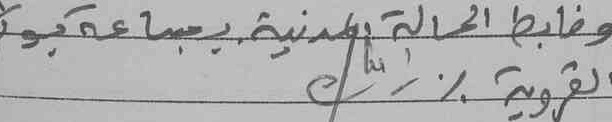 وضابط الحالة المدنية بجماعة
القروية